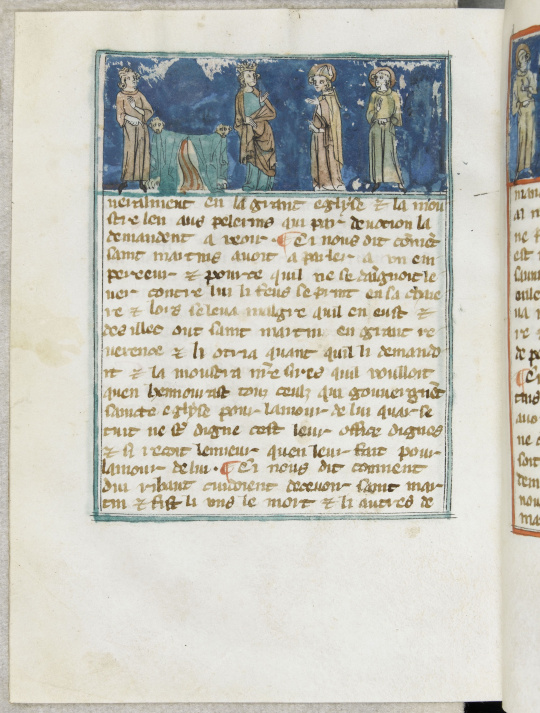 neralment en la grant eglyse & la mou
stre len aus pelerins qui par devotion la
demandent a veoir. Ci nous dit comēt
saint martins avoit a parler a un em
pereeur & pource quil ne se daignoit le
ver contre lui li feus se prist en sa chaie
re & lors se leva malgre quil en eust &
des illec out saint martin en grant re
verence & li otria quant quil li demand
it & la moustra nr̄e sires quil vouloit
quen hennourast touz ceulz qui gouvernēt
saincte eglyse pour lamour de lui quar se
tuit ne sōt digne cest leur office dignes
& si recoit lenneur quen leur fait pour
lamour de lui. Ci nous dit comment
dui ribaut cuidoient decevoir saint mar
tin & fist li uns le mort & li autres de